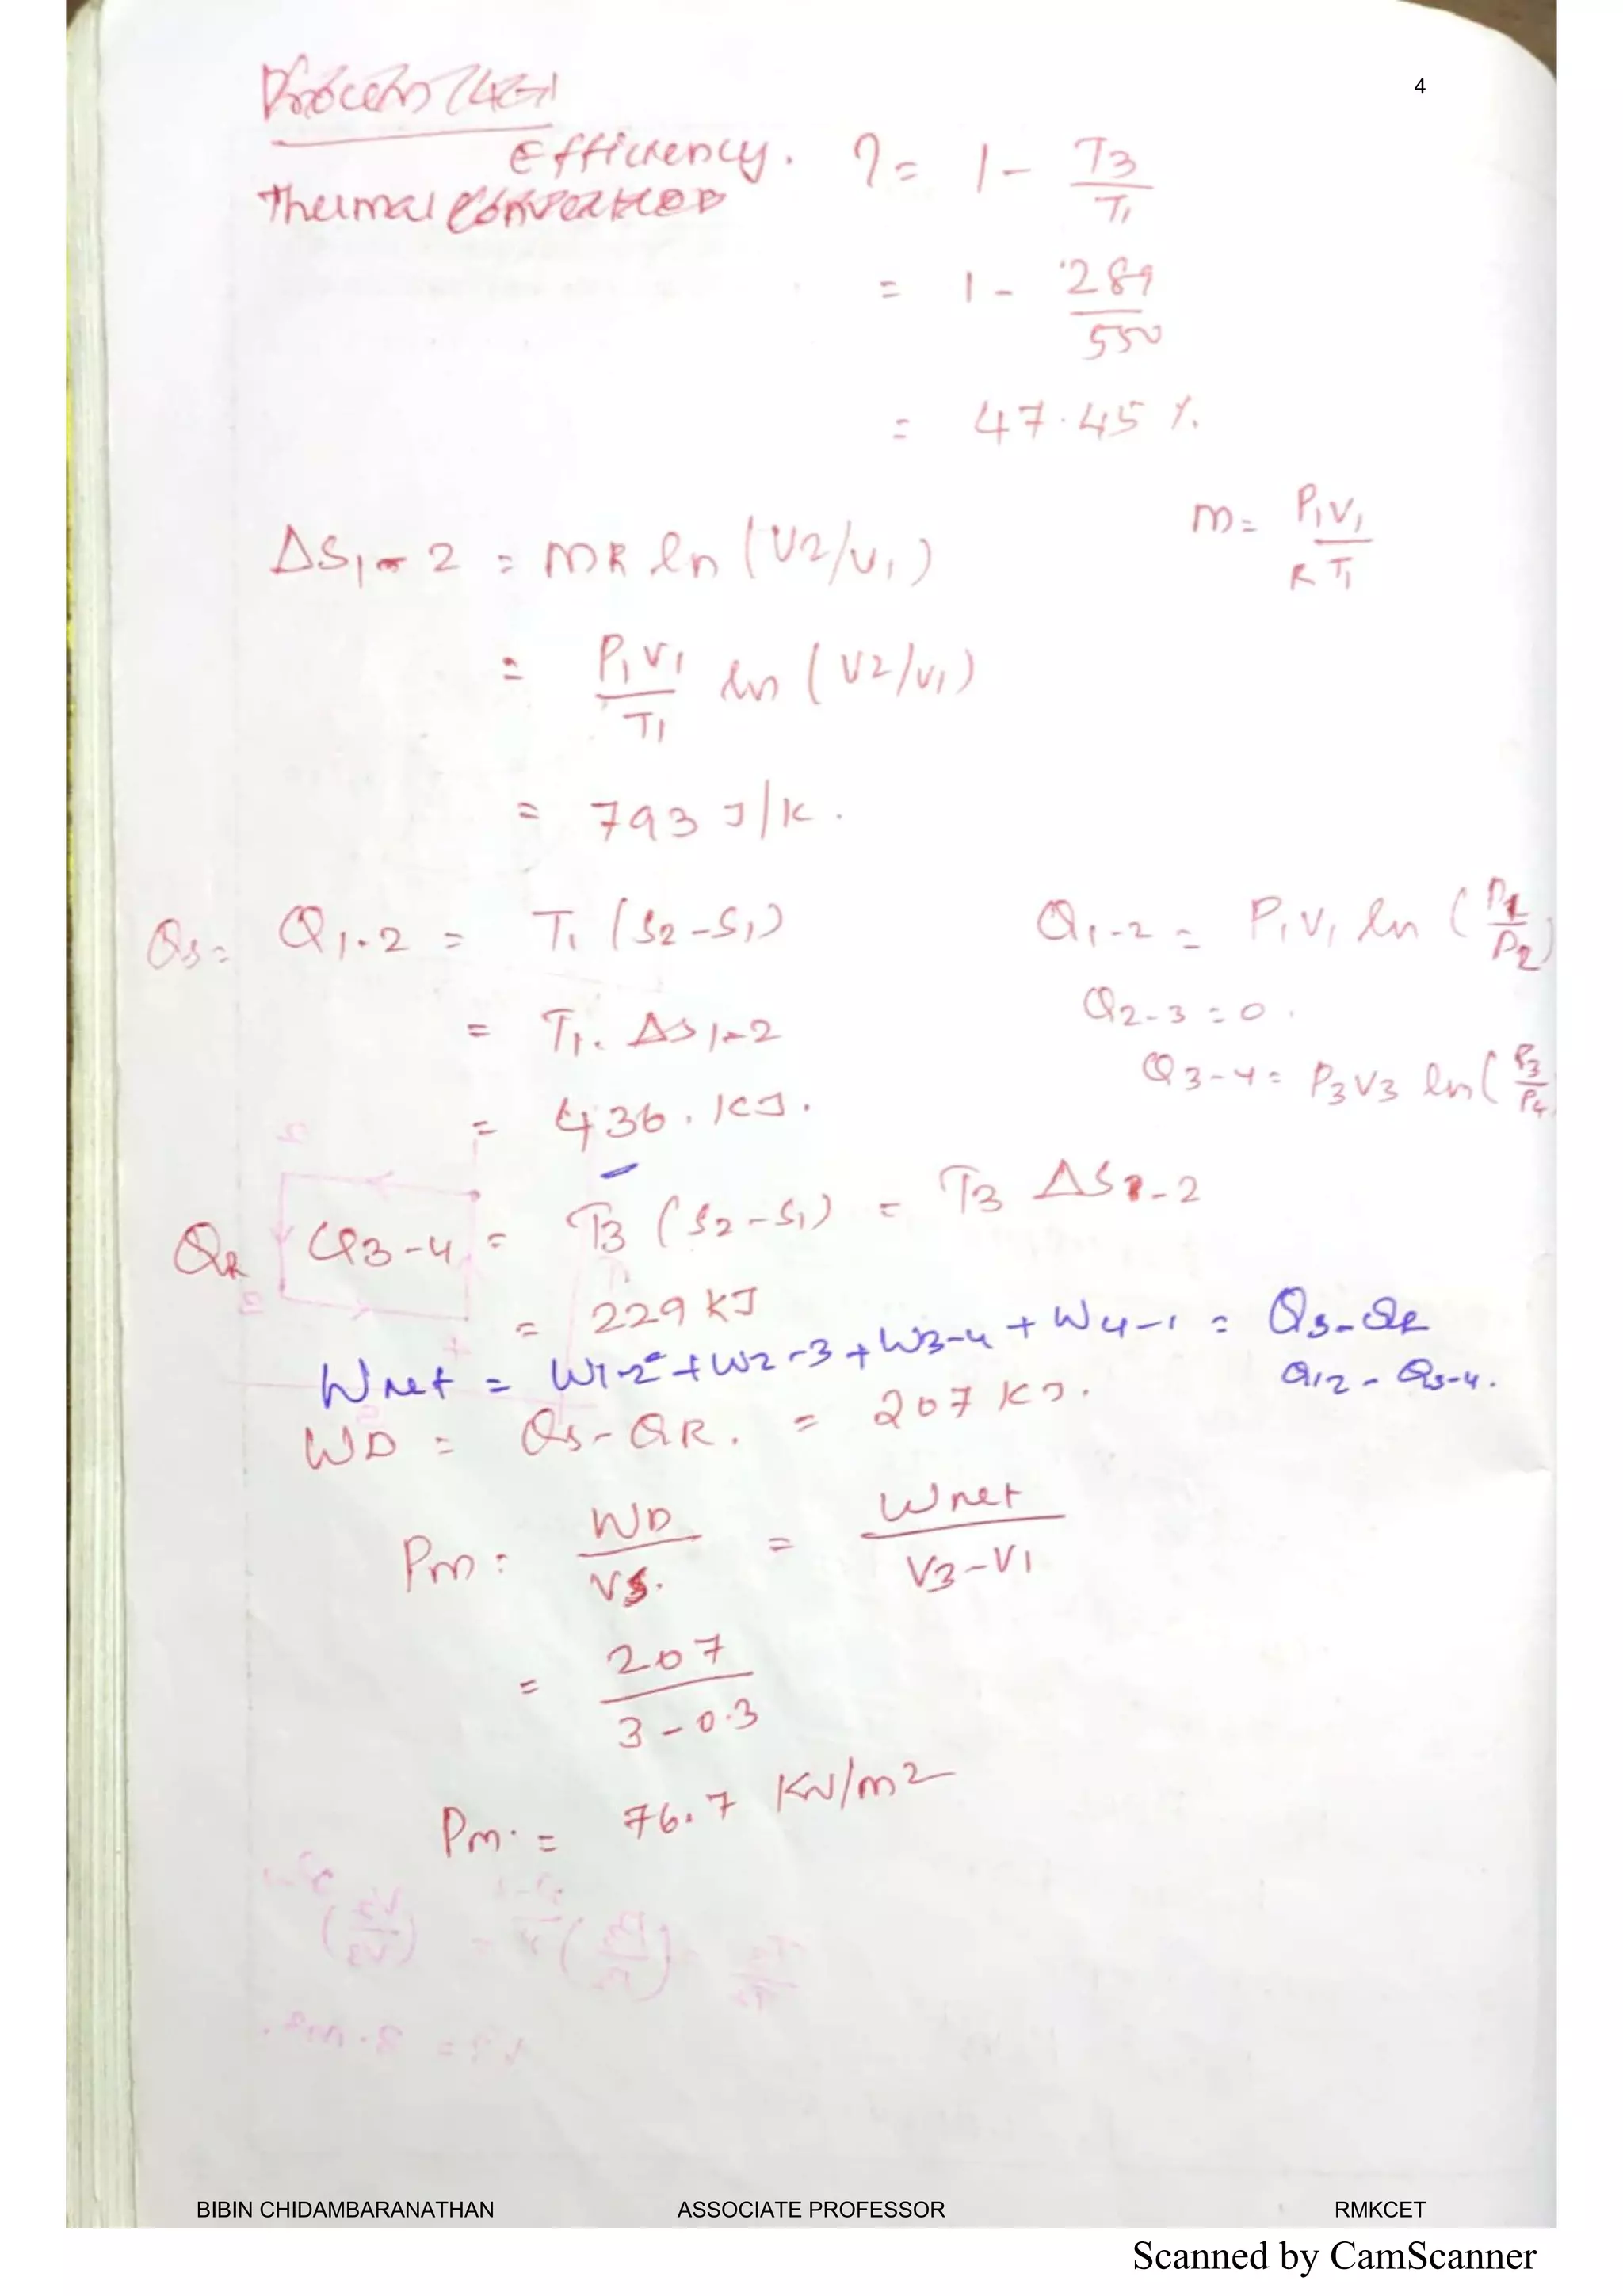 4
Efficiency. η = 1 - T3/T1
Thermal
= 1 - 289/550
= 47.45 %.
ΔS1-2 = mR ln (V2/V1)
m = P1V1/RT1
= P1V1/T1 ln (V2/V1)
= 793 J/K.
Qs = Q1-2 = T1 (S2-S1)
Q1-2 = P1V1 ln (P1/P2)
= T1. ΔS1-2
Q2-3 = 0.
= 436. KJ.
Q3-4 = P3V3 ln (P3/P4
QR Q3-4 = T3 (S2-S1) = T3 ΔS1-2
= 229 KJ
Wnet = W1-2 + W2-3 + W3-4 + W4-1 = Qs-QR
Q12 - Q3-4.
WD = Qs-QR. = 207 KJ.
Pm = WD/Vs. = Wnet/V3-V1
= 207/3-0.3
Pm. = 76.7 KN/m2
BIBIN CHIDAMBARANATHAN ASSOCIATE PROFESSOR RMKCET
Scanned by CamScanner